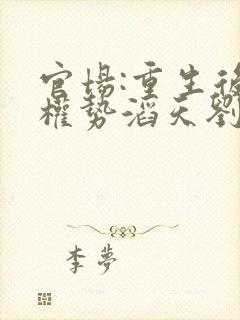 官場:重生後
權勢滔天劉
李夢